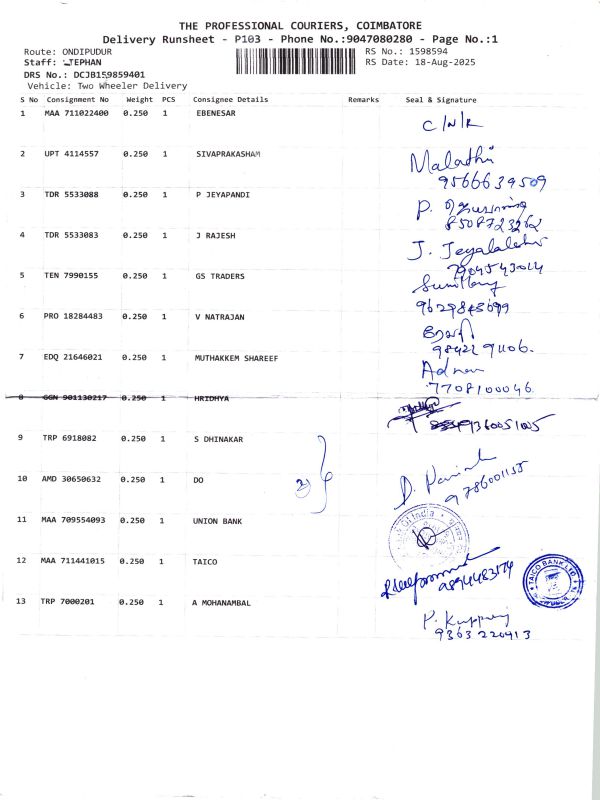 THE PROFESSIONAL COURIERS, COIMBATORE
Delivery Runsheet - P103 - Phone No.:9047080280 - Page No.:1
Route: ONDIPUDUR RS No.: 1598594
Staff: STEPHAN RS Date: 18-Aug-2025
DRS No.: DCJB159859401
Vehicle: Two Wheeler Delivery
S No Consignment No Weight PCS Consignee Details Remarks Seal & Signature
1 MAA 711022400 0.250 1 EBENESAR C/N/R
2 UPT 4114557 0.250 1 SIVAPRAKASHAM Malathi
9566639509
3 TDR 5533088 0.250 1 P JEYAPANDI P.
8508723262
4 TDR 5533083 0.250 1 J RAJESH J. Jeyalakshmi
7904543014
5 TEN 7990155 0.250 1 GS TRADERS
9629848699
6 PRO 18284483 0.250 1 V NATRAJAN
9842291106.
7 EDQ 21646021 0.250 1 MUTHAKKEM SHAREEF Adnan
7708100046.
8 GGN 901130217 0.250 1 HRIDHYA
9360051005
9 TRP 6918082 0.250 1 S DHINAKAR
10 AMD 30650632 0.250 1 DO 2
9786001155
11 MAA 709554093 0.250 1 UNION BANK Of India
12 MAA 711441015 0.250 1 TAICO
9894483174
TAICO BANK LTD
13 TRP 7000201 0.250 1 A MOHANAMBAL P.
9363220413